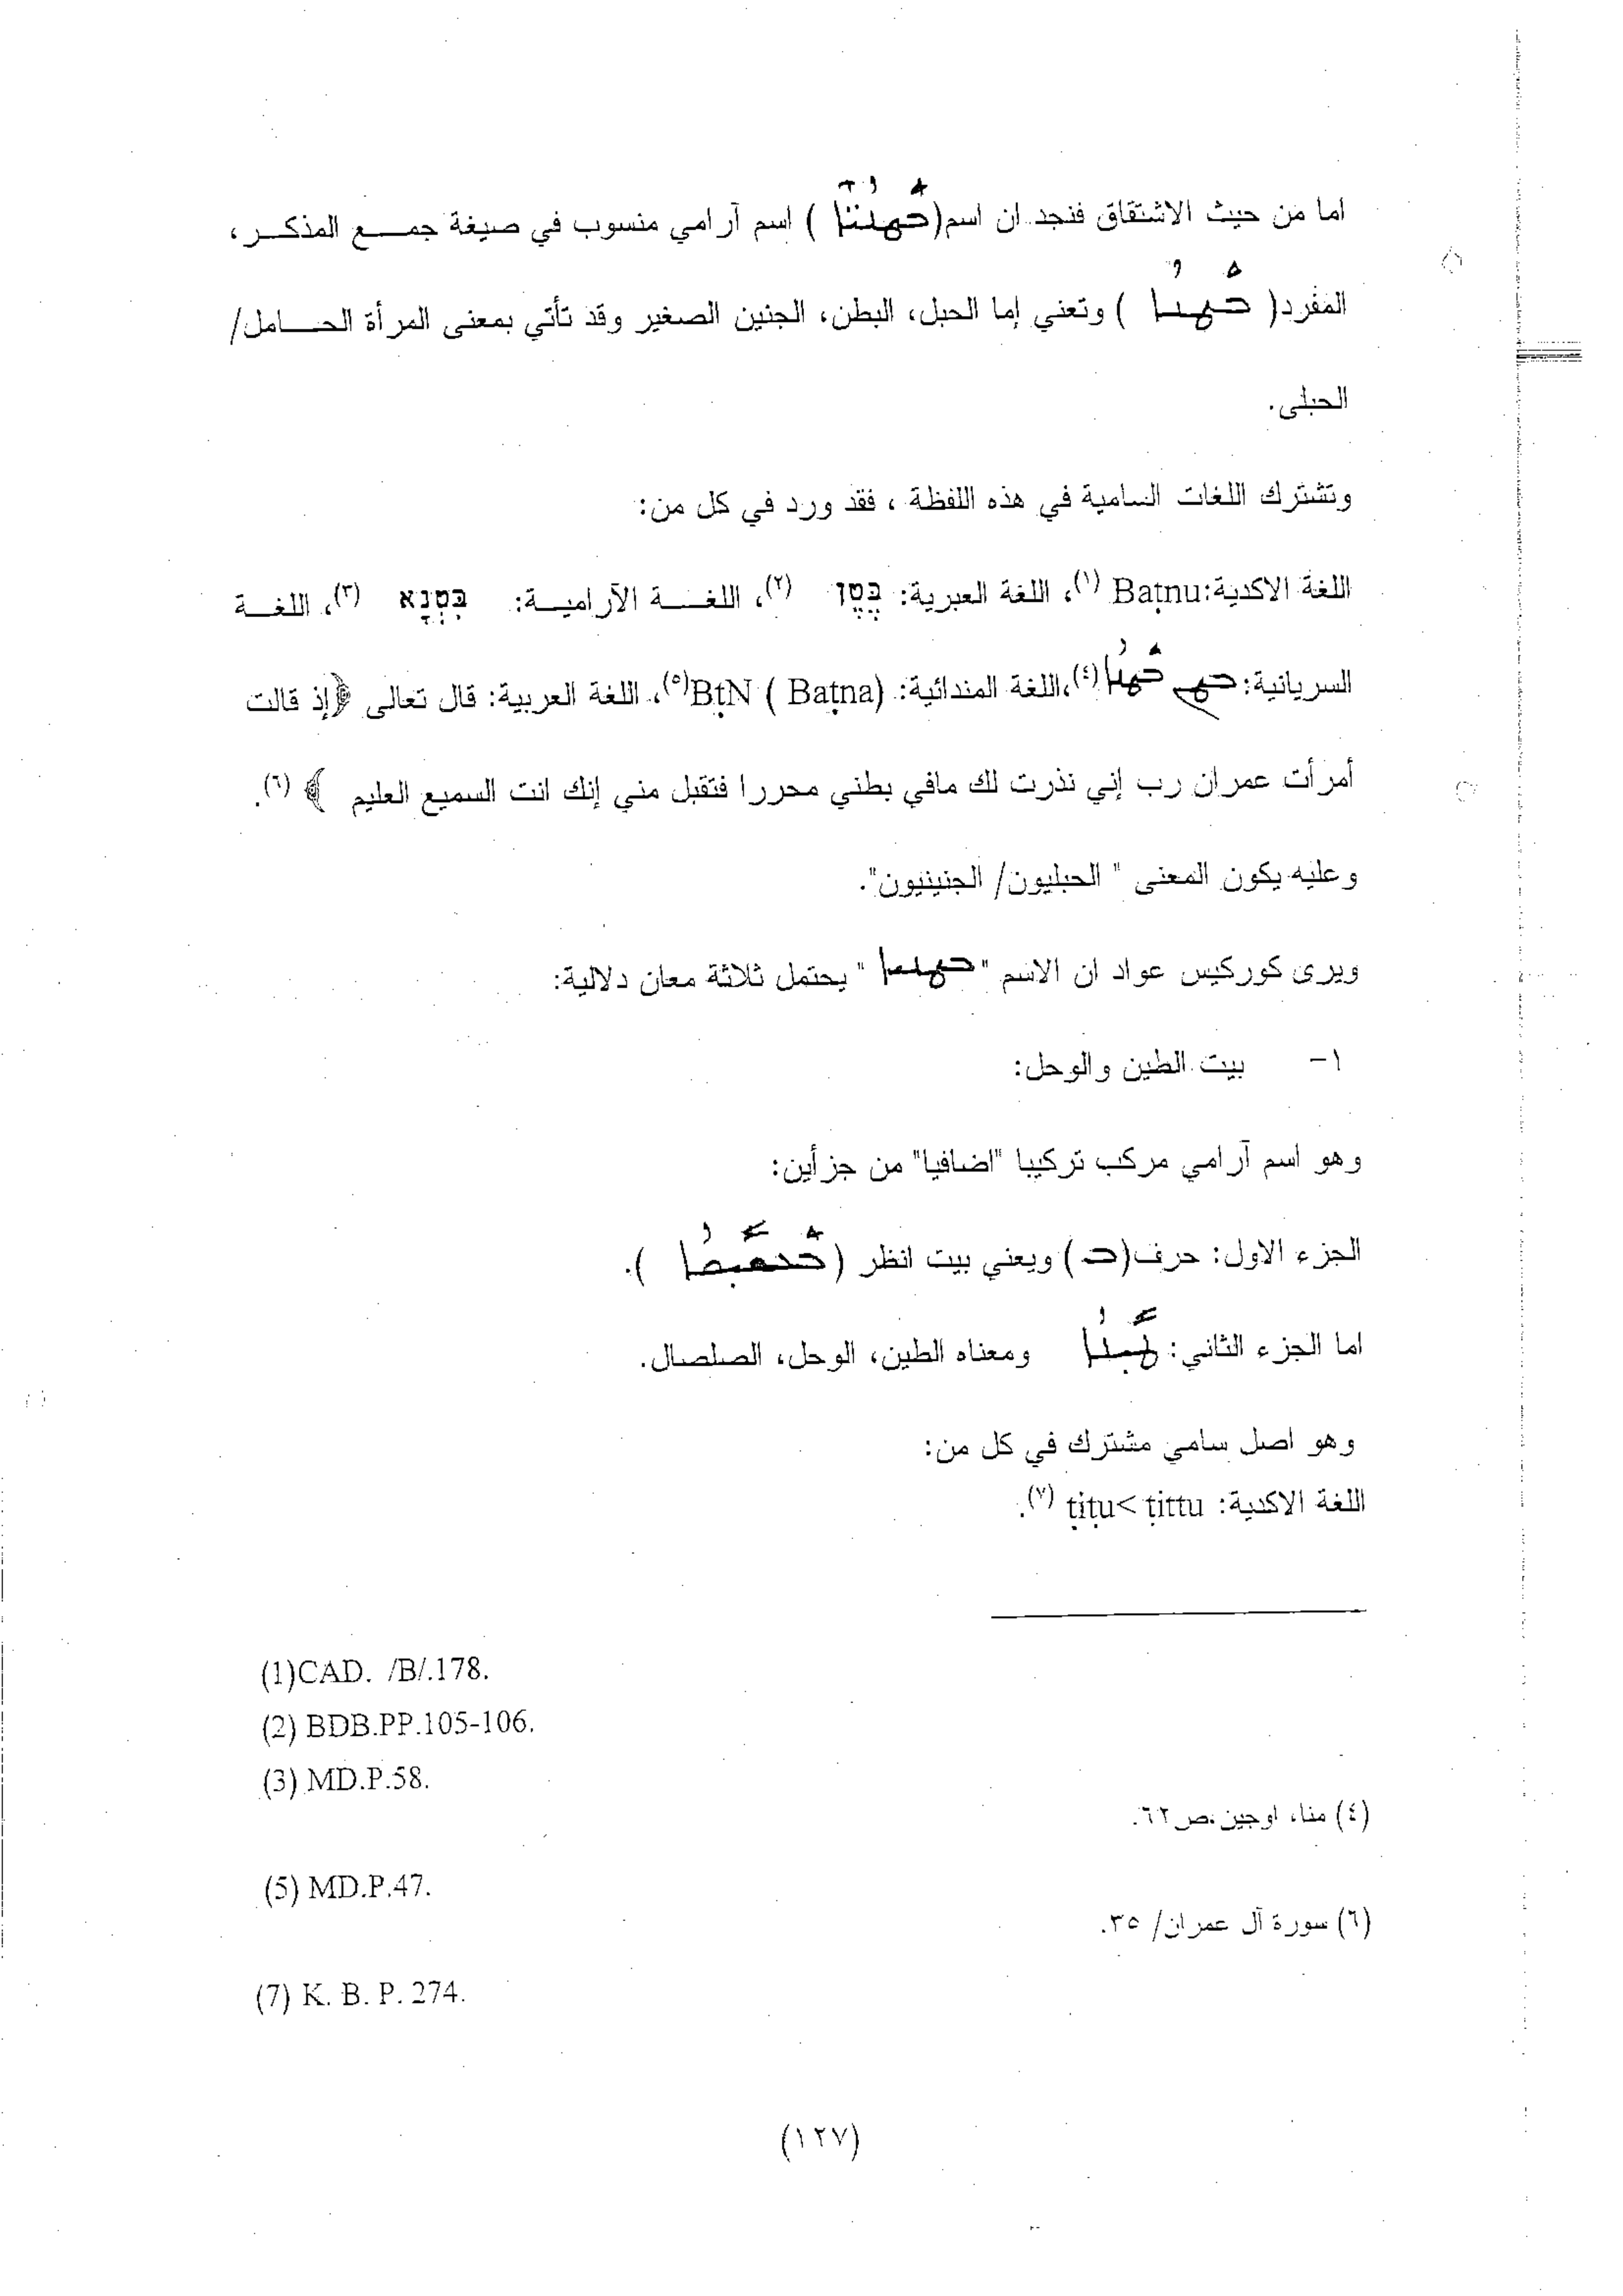 اما من حيث الاشتقاق فنجد ان اسم( ) اسم آرامي منسوب في صيغة جمع المذكر،
المفرد( ܒܛܢܐ ) وتعني إما الحبل، البطن، الجنين الصغير وقد تأتي بمعنى المرأة الحامل/
الحبلى.
وتشترك اللغات السامية في هذه اللفظة ، فقد ورد في كل من:
اللغة الاكدية:Baṭnu (١)، اللغة العبرية: בֶּטֶן (٢)، اللغة الآرامية: בִּטְנָא (٣)، اللغة
السريانية: ܒܛܢ ܒܛܢܐ(٤)،اللغة المندائية: BṭN ( Baṭna)(٥)، اللغة العربية: قال تعالى ﴿إذ قالت
أمرأت عمران رب إني نذرت لك مافي بطني محررا فتقبل مني إنك انت السميع العليم ﴾ (٦).
وعليه يكون المعنى " الحبليون/ الجنينيون".
ويرى كوركيس عواد ان الاسم " " يحتمل ثلاثة معان دلالية:
١- بيت الطين والوحل:
وهو اسم آرامي مركب تركيبا "اضافيا" من جزأين:
الجزء الاول: حرف(ܒ) ويعني بيت انظر ( ).
اما الجزء الثاني: ܛܝܢܐ ومعناه الطين، الوحل، الصلصال.
وهو اصل سامي مشترك في كل من:
اللغة الاكدية: ṭiṭu< ṭittu (٧).
(1)CAD. /B/.178.
(2) BDB.PP.105-106.
(3) MD.P.58.
(٤) منا، اوجين،ص٦٢.
(5) MD.P.47.
(٦) سورة آل عمران/ ٣٥.
(7) K. B. P. 274.
(١٢٧)